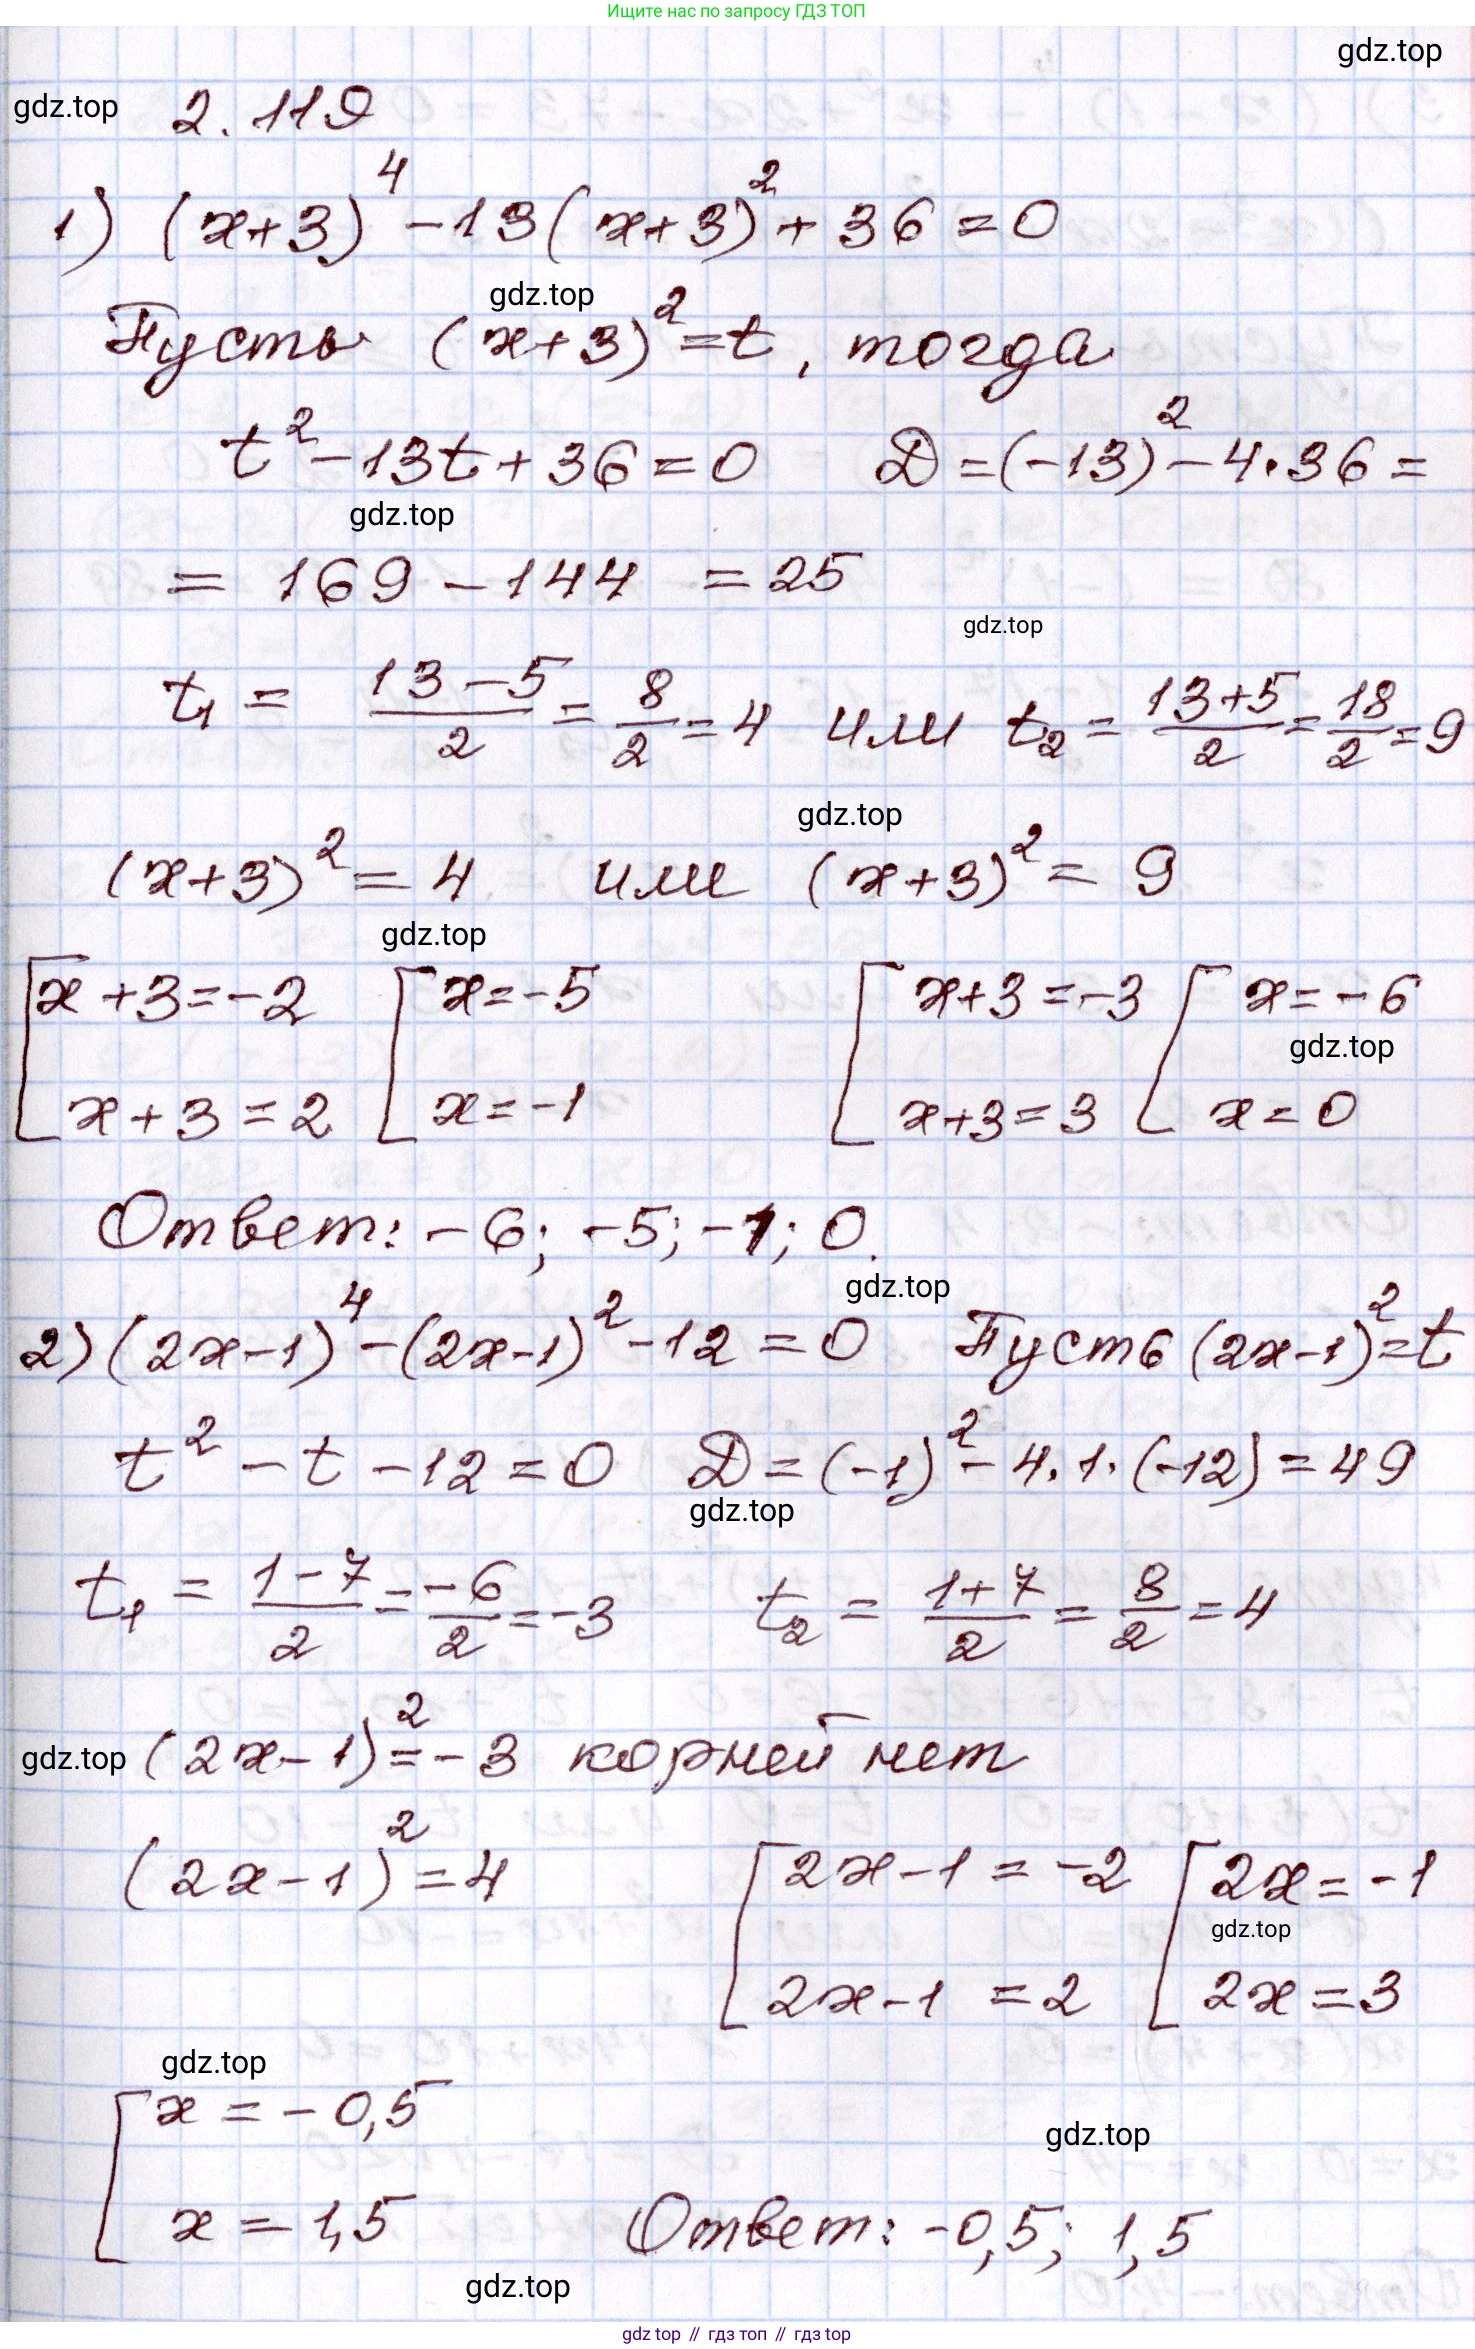 Ищите нас по запросу ГДЗ ТОП
gdz.top
gdz.top 2.119
1) (x+3)⁴ - 13(x+3)² + 36 = 0
gdz.top
Пусть (x+3)² = t, тогда
t² - 13t + 36 = 0 D = (-13)² - 4·36 =
gdz.top
= 169 - 144 = 25
gdz.top
t₁ = (13-5)/2 = 8/2 = 4 или t₂ = (13+5)/2 = 18/2 = 9
gdz.top
(x+3)² = 4 или (x+3)² = 9
gdz.top
[x+3=-2 [x=-5 [x+3=-3 [x=-6
gdz.top
x+3=2 x=-1 x+3=3 x=0
Ответ: -6; -5; -1; 0.
gdz.top
2) (2x-1)⁴ - (2x-1)² - 12 = 0 Пусть (2x-1)² = t
t² - t - 12 = 0 D = (-1)² - 4·1·(-12) = 49
gdz.top
t₁ = (1-7)/2 = -6/2 = -3 t₂ = (1+7)/2 = 8/2 = 4
gdz.top (2x-1)² = -3 корней нет
(2x-1)² = 4 [2x-1=-2 [2x=-1
gdz.top
2x-1=2 2x=3
gdz.top
[x=-0,5
gdz.top
x=1,5 Ответ: -0,5; 1,5
gdz.top
gdz top // гдз топ // гдз top